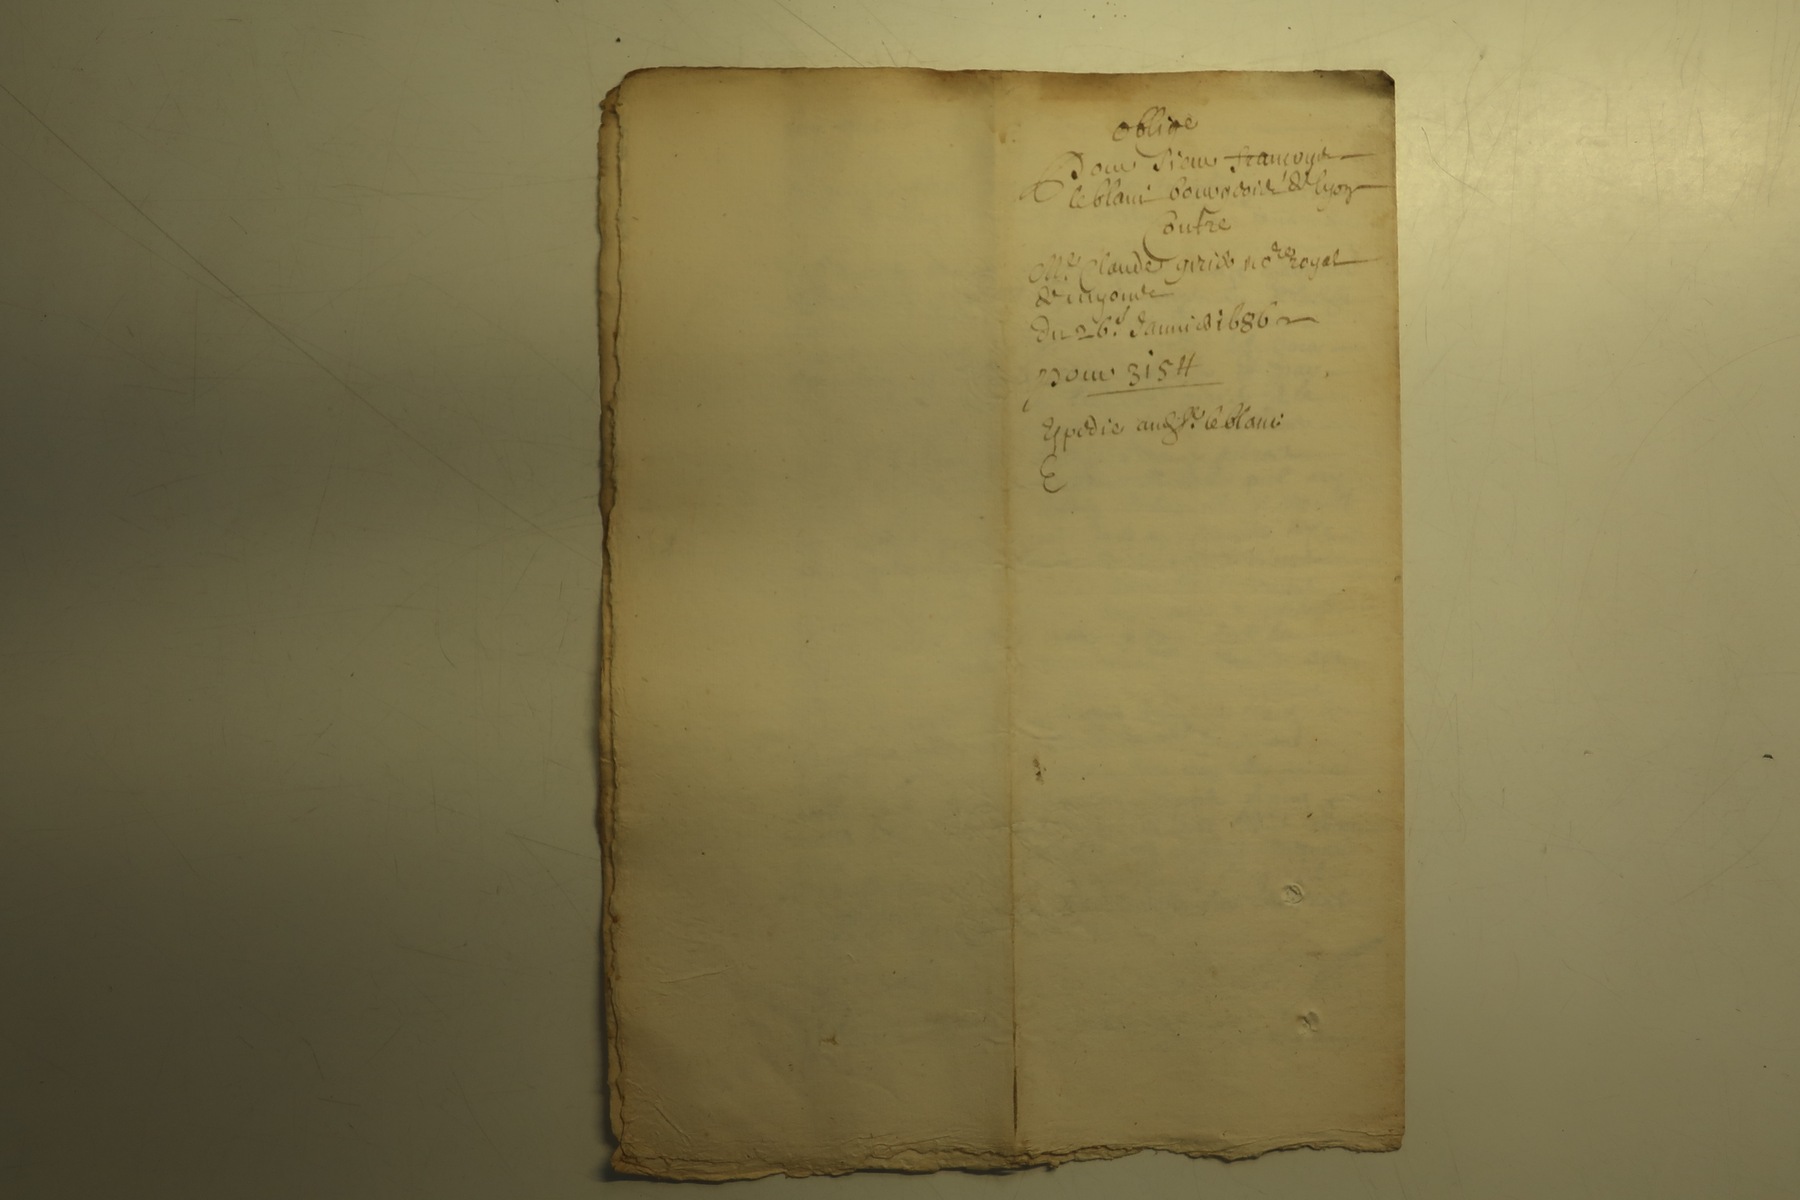 Oblige
Pour sieur françoys
leblanc bourgeois de lyon
Contre
Me Claude no.re royal
Du 26e Janvier 1686
pour 315 ll
Expedie aud Sr leblanc
E